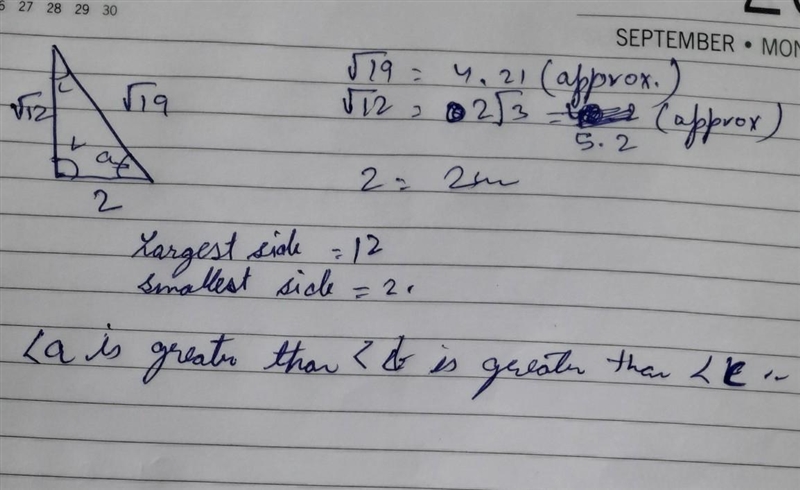 6 27 28 29 30
SEPTEMBER • MON
√19 = 4.21 (approx.)
√12 = 2√3 = 5.2 (approx)
2 = 2
√12 √19
c
b a
2
Largest side = 12
Smallest side = 2.
∠a is greater than ∠b is greater than ∠c